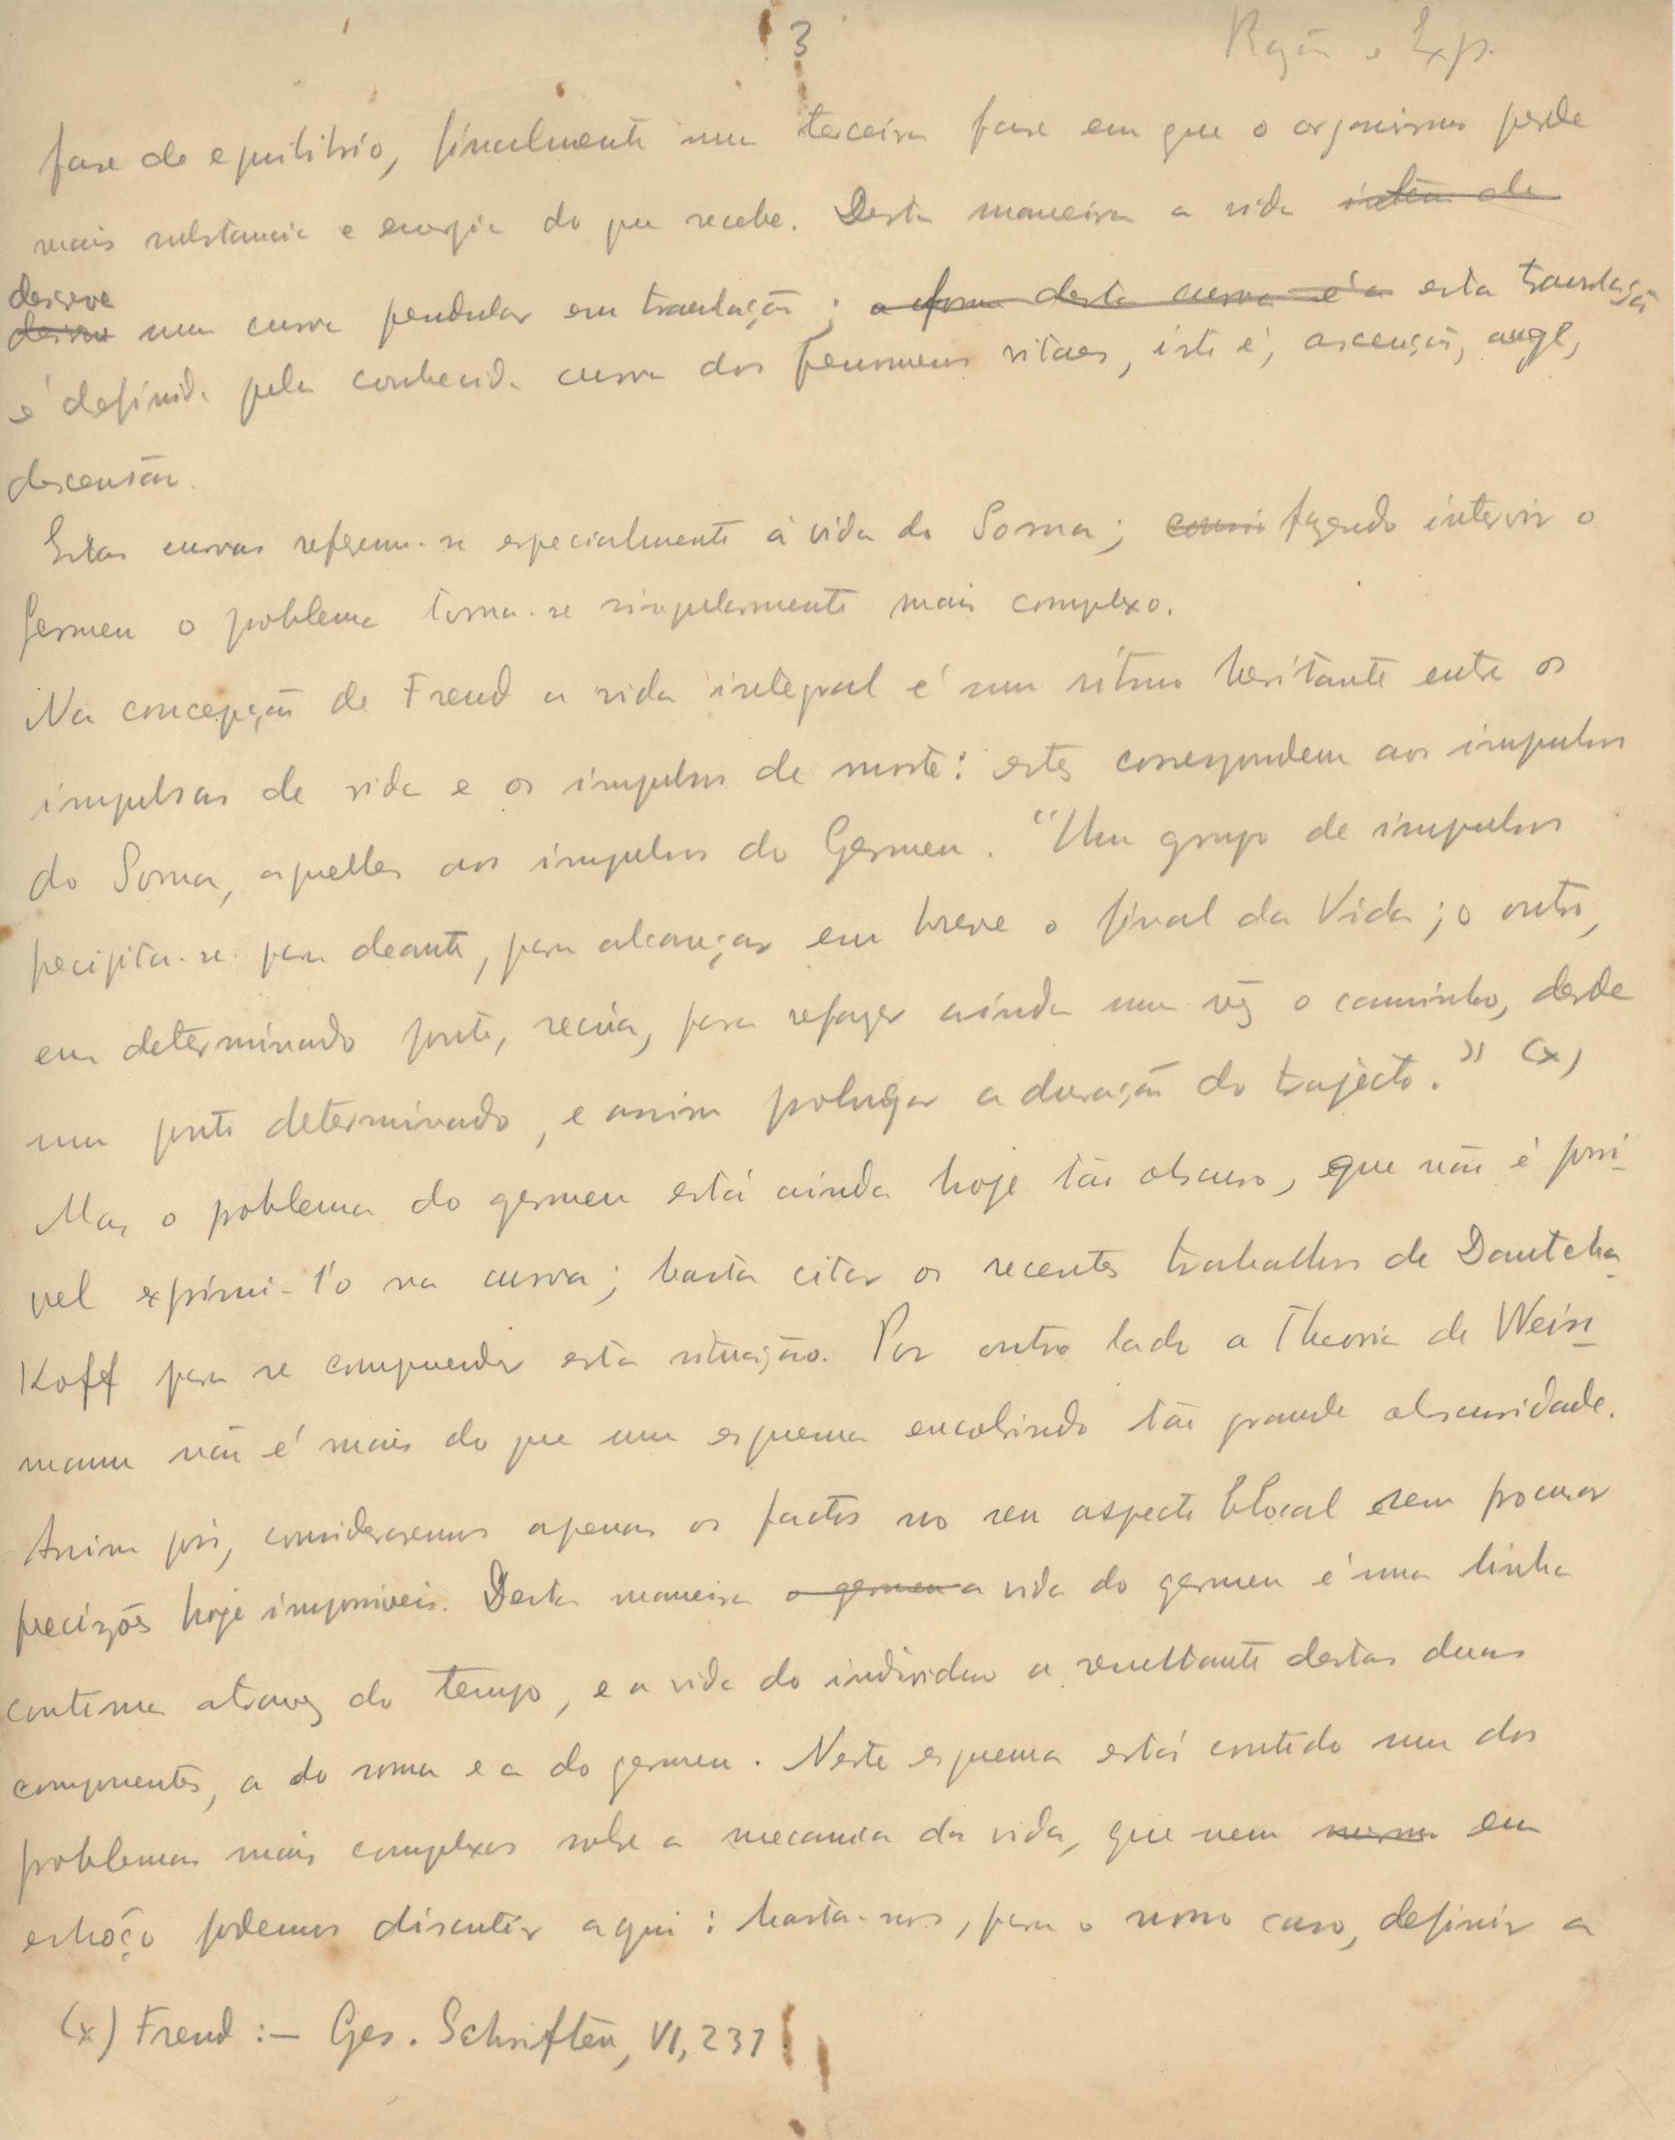 3
Razão e Exp.
fase de equilibrio, finalmente uma terceira fase em que o organismo perde
mais substancia e energia do que recebe. Desta maneira a vida
descreve
uma curva pendular em translação; a forma desta curva é a esta translação
é definida pela conhecida curva dos fenomenos vitaes, isto é, ascenção, auge,
descensão.
Estas curvas referem-se especialmente á vida do Soma; fazendo intervir o
Germen o problema torna-se singularmente mais complexo.
Na concepção de Freud a vida integral é um ritmo hesitante entre os
impulsos de vida e os impulsos de morte: estes correspondem aos impulsos
do Soma, aquelles aos impulsos do Germen. "Um grupo de impulsos
precipita-se para deante, para alcançar em breve o final da Vida; o outro,
em determinado ponto, recúa, para refazer ainda uma vêz o caminho, desde
um ponto determinado, e assim prolongar a duração do trajecto." (x)
Mas o problema do germen está ainda hoje tão obscuro, que não é possi-
vel exprimi-l'o na curva; basta citar os recentes trabalhos de Dantcha-
Koff para se comprender esta situação. Por outro lado a Theoria de Weiss-
mann não é mais do que um esquema encobrindo tão grande obscuridade.
Assim pois, consideraremos apenas os factos no seu aspecto blocal sem procurar
precizões hoje impossiveis. Desta maneira o germen a vida do germen é uma linha
continua atravez do tempo, e a vida do individuo a resultante destas duas
componentes, a do soma e a do germen. Neste esquema está contido um dos
problemas mais complexos sobre a mecanica da vida, que nem mesmo em
esboço podemos discutir aqui: basta-nos, para o nosso caso, definir a
(x) Freud :— Ges. Schriften, VI, 231